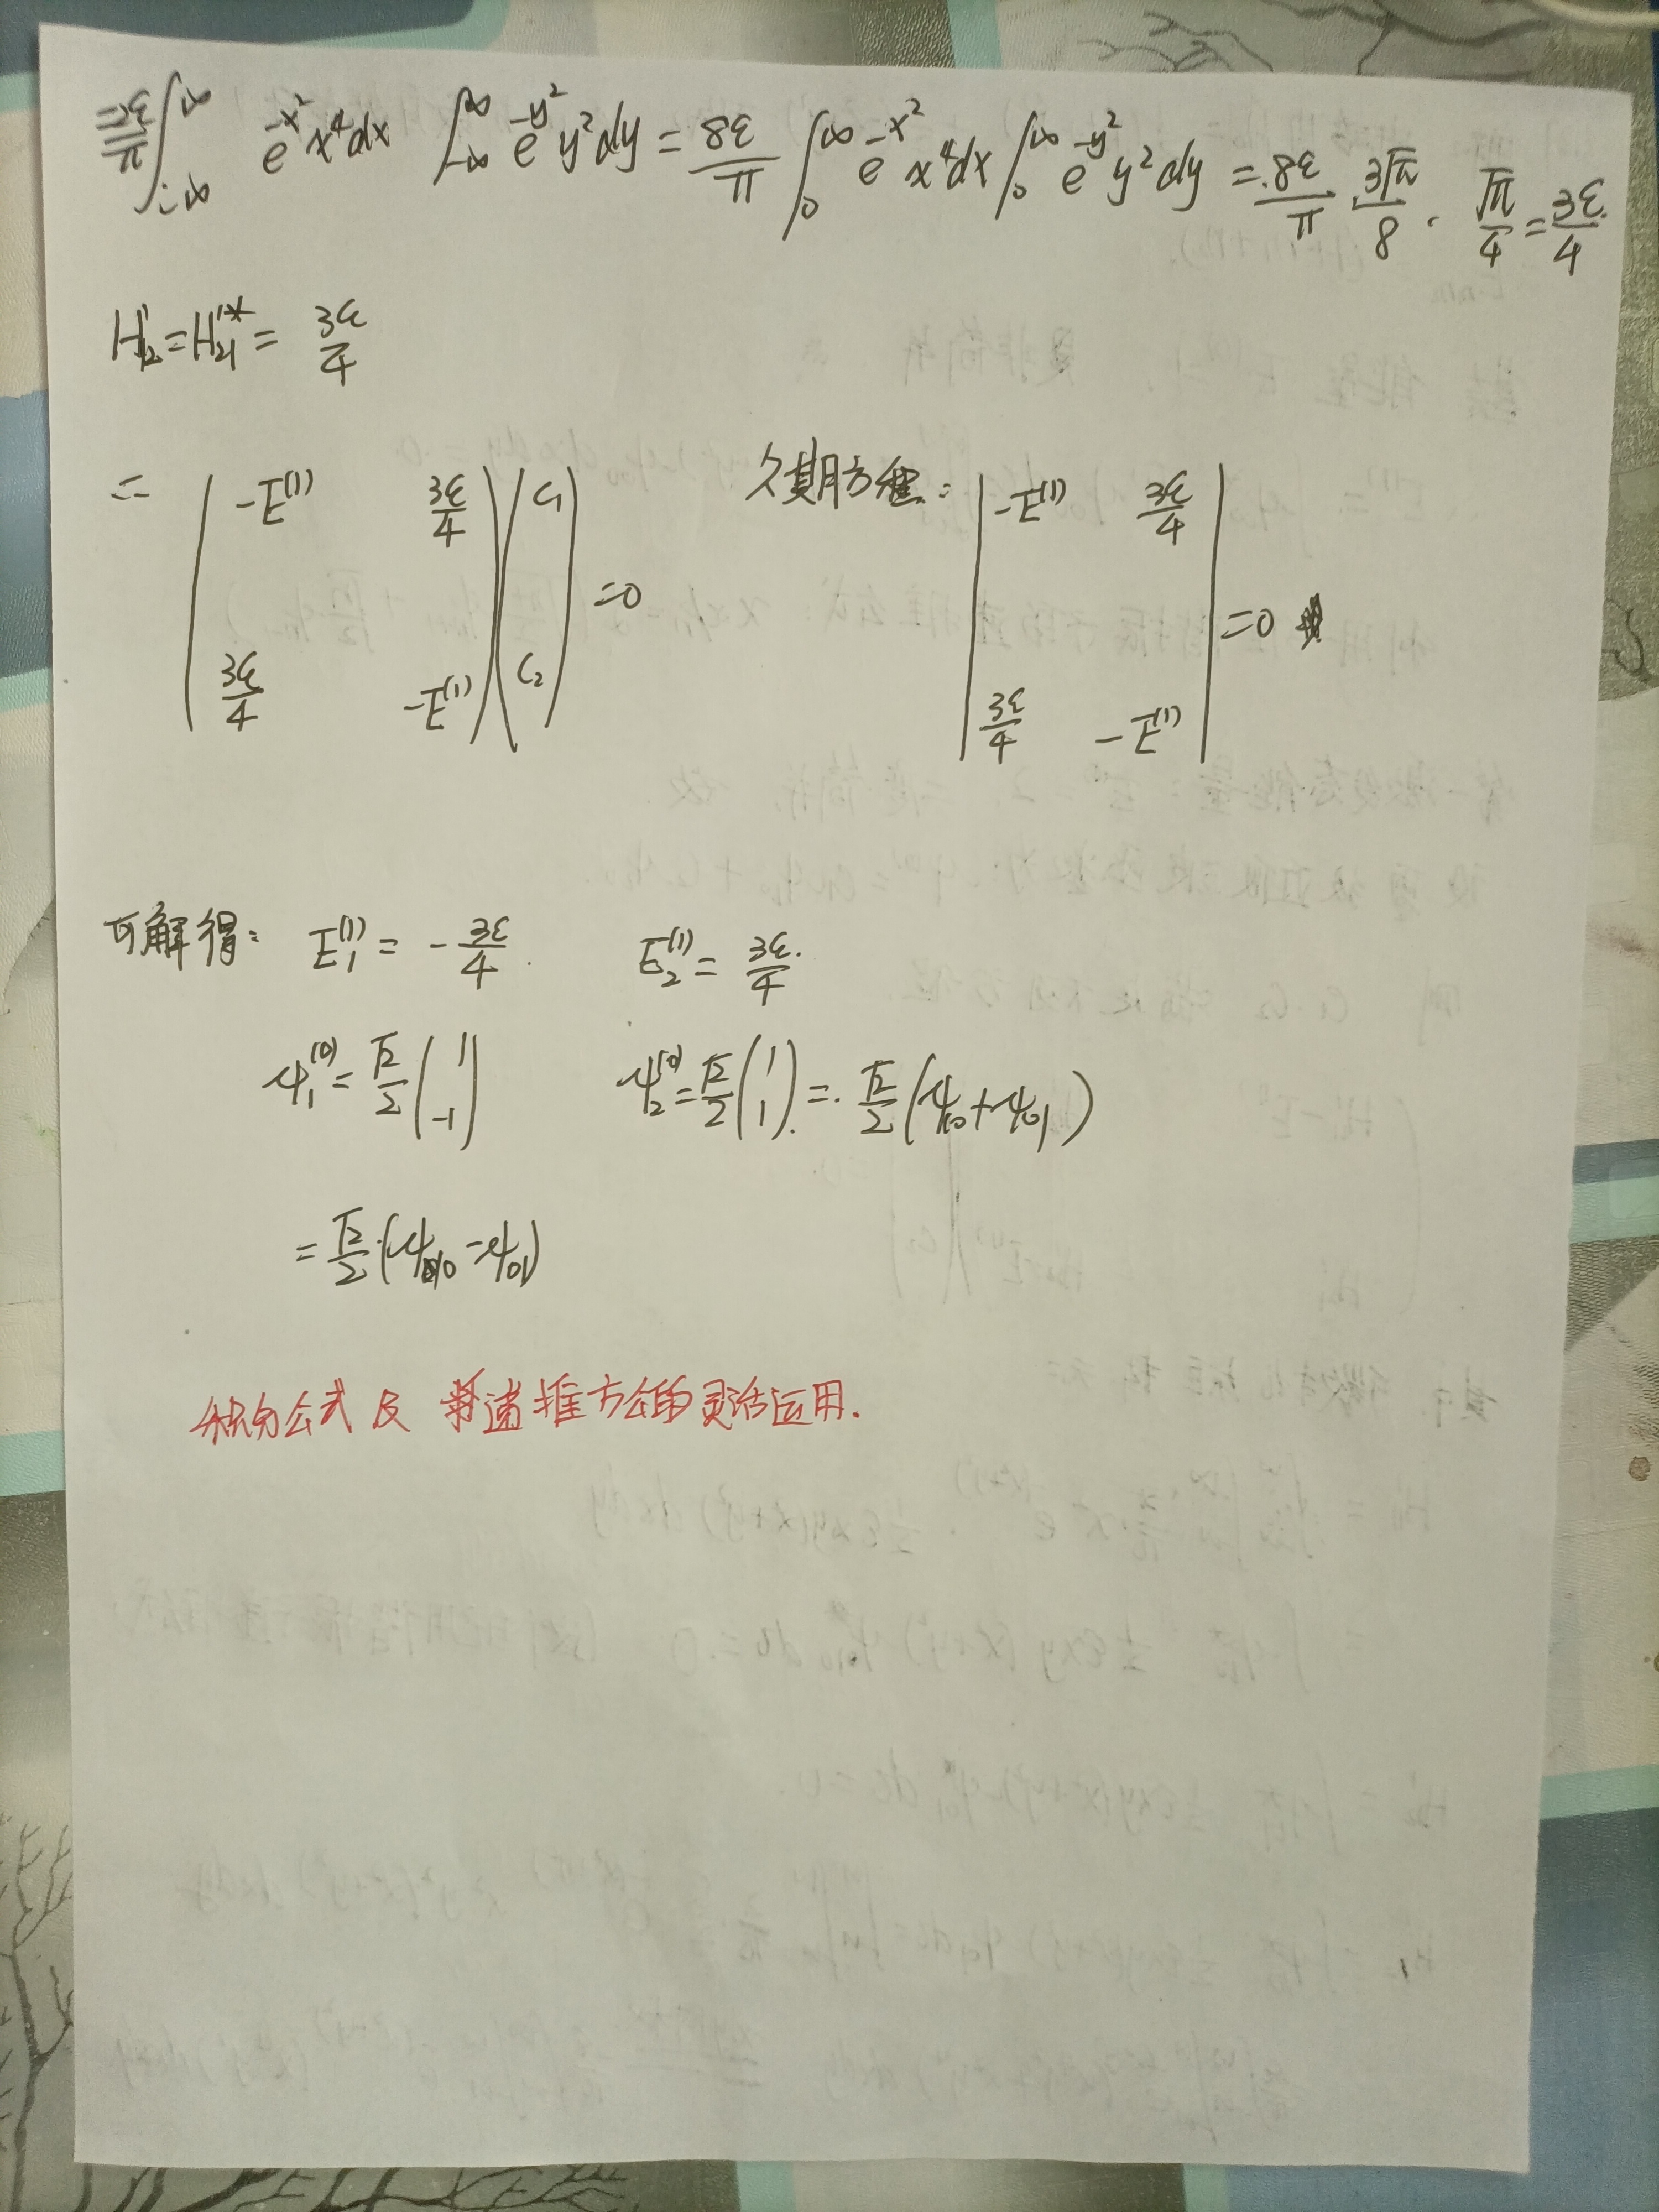 = 2ε/π ∫_{-∞}^{∞} e^{-x²} x⁴dx ∫_{-∞}^{∞} e^{-y²} y²dy = 8ε/π ∫_0^∞ e^{-x²} x⁴dx ∫_0^∞ e^{-y²} y²dy = 8ε/π · 3√π/8 · √π/4 = 3ε/4
H'₁₂ = H'₂₁* = 3ε/4
∴ ( -E⁽¹⁾ 3ε/4 ; 3ε/4 -E⁽¹⁾ ) ( C₁ ; C₂ ) = 0 久期方程: | -E⁽¹⁾ 3ε/4 ; 3ε/4 -E⁽¹⁾ | = 0
可解得: E₁⁽¹⁾ = - 3ε/4 . E₂⁽¹⁾ = 3ε/4 .
ψ₁⁽⁰⁾ = √2/2 ( 1 ; -1 ) ψ₂⁽⁰⁾ = √2/2 ( 1 ; 1 ) = √2/2 (ψ₁₀ + ψ₀₁)
= √2/2 (ψ₁₀ - ψ₀₁)
积分公式及递推方公的灵活运用.